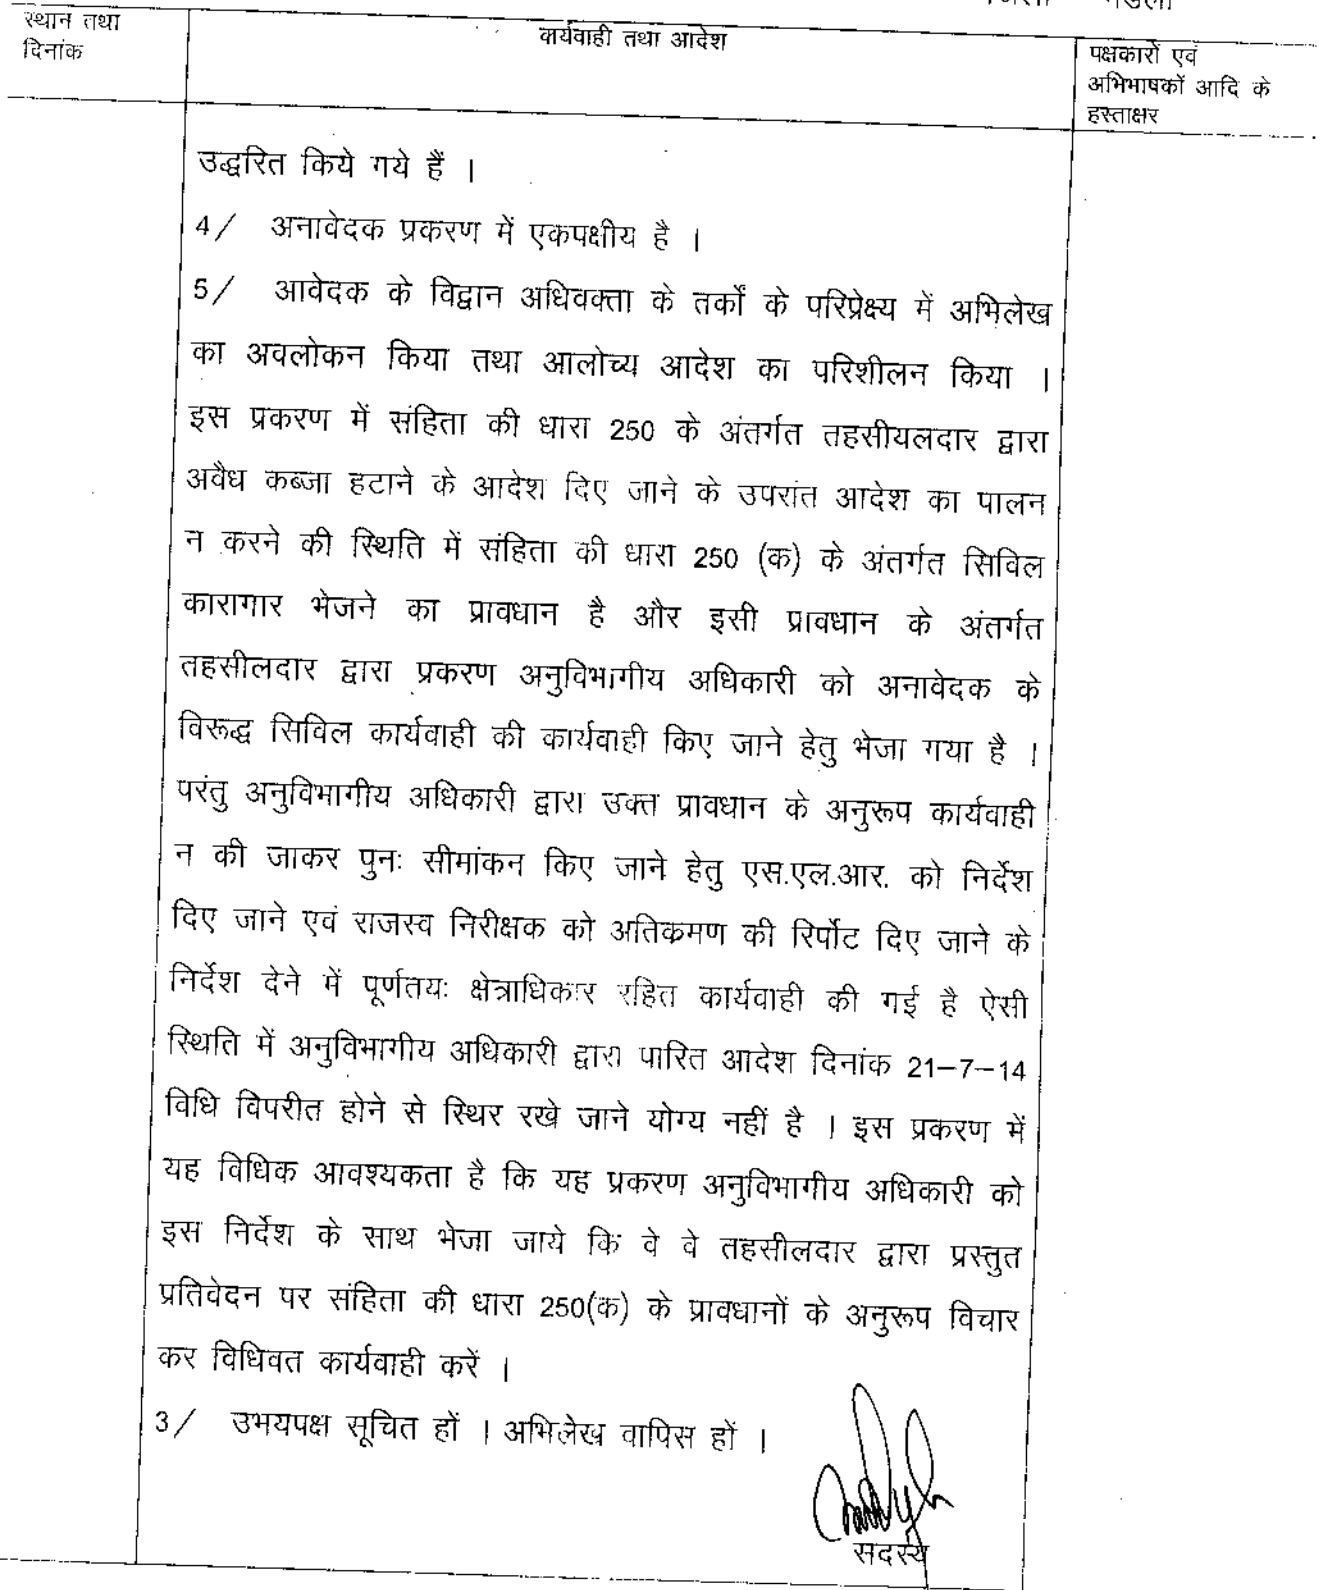 स्थान तथा
दिनांक
कार्यवाही तथा आदेश
पक्षकारों एवं
अभिभाषकों आदि के
हस्ताक्षर
उद्धरित किये गये हैं ।
4/ अनावेदक प्रकरण में एकपक्षीय है ।
5/ आवेदक के विद्वान अधिवक्ता के तर्कों के परिप्रेक्ष्य में अभिलेख
का अवलोकन किया तथा आलोच्य आदेश का परिशीलन किया ।
इस प्रकरण में संहिता की धारा 250 के अंतर्गत तहसीयलदार द्वारा
अवैध कब्जा हटाने के आदेश दिए जाने के उपरांत आदेश का पालन
न करने की स्थिति में संहिता की धारा 250 (क) के अंतर्गत सिविल
कारागार भेजने का प्रावधान है और इसी प्रावधान के अंतर्गत
तहसीलदार द्वारा प्रकरण अनुविभागीय अधिकारी को अनावेदक के
विरूद्ध सिविल कार्यवाही की कार्यवाही किए जाने हेतु भेजा गया है ।
परंतु अनुविभागीय अधिकारी द्वारा उक्त प्रावधान के अनुरूप कार्यवाही
न की जाकर पुनः सीमांकन किए जाने हेतु एस.एल.आर. को निर्देश
दिए जाने एवं राजस्व निरीक्षक को अतिकमण की रिर्पोट दिए जाने के
निर्देश देने में पूर्णतयः क्षेत्राधिकार रहित कार्यवाही की गई है ऐसी
स्थिति में अनुविभागीय अधिकारी द्वारा पारित आदेश दिनांक 21–7–14
विधि विपरीत होने से स्थिर रखे जाने योग्य नहीं है । इस प्रकरण में
यह विधिक आवश्यकता है कि यह प्रकरण अनुविभागीय अधिकारी को
इस निर्देश के साथ भेजा जाये कि वे वे तहसीलदार द्वारा प्रस्तुत
प्रतिवेदन पर संहिता की धारा 250(क) के प्रावधानों के अनुरूप विचार
कर विधिवत कार्यवाही करें ।
3/ उभयपक्ष सूचित हों । अभिलेख वापिस हों ।
सदस्य